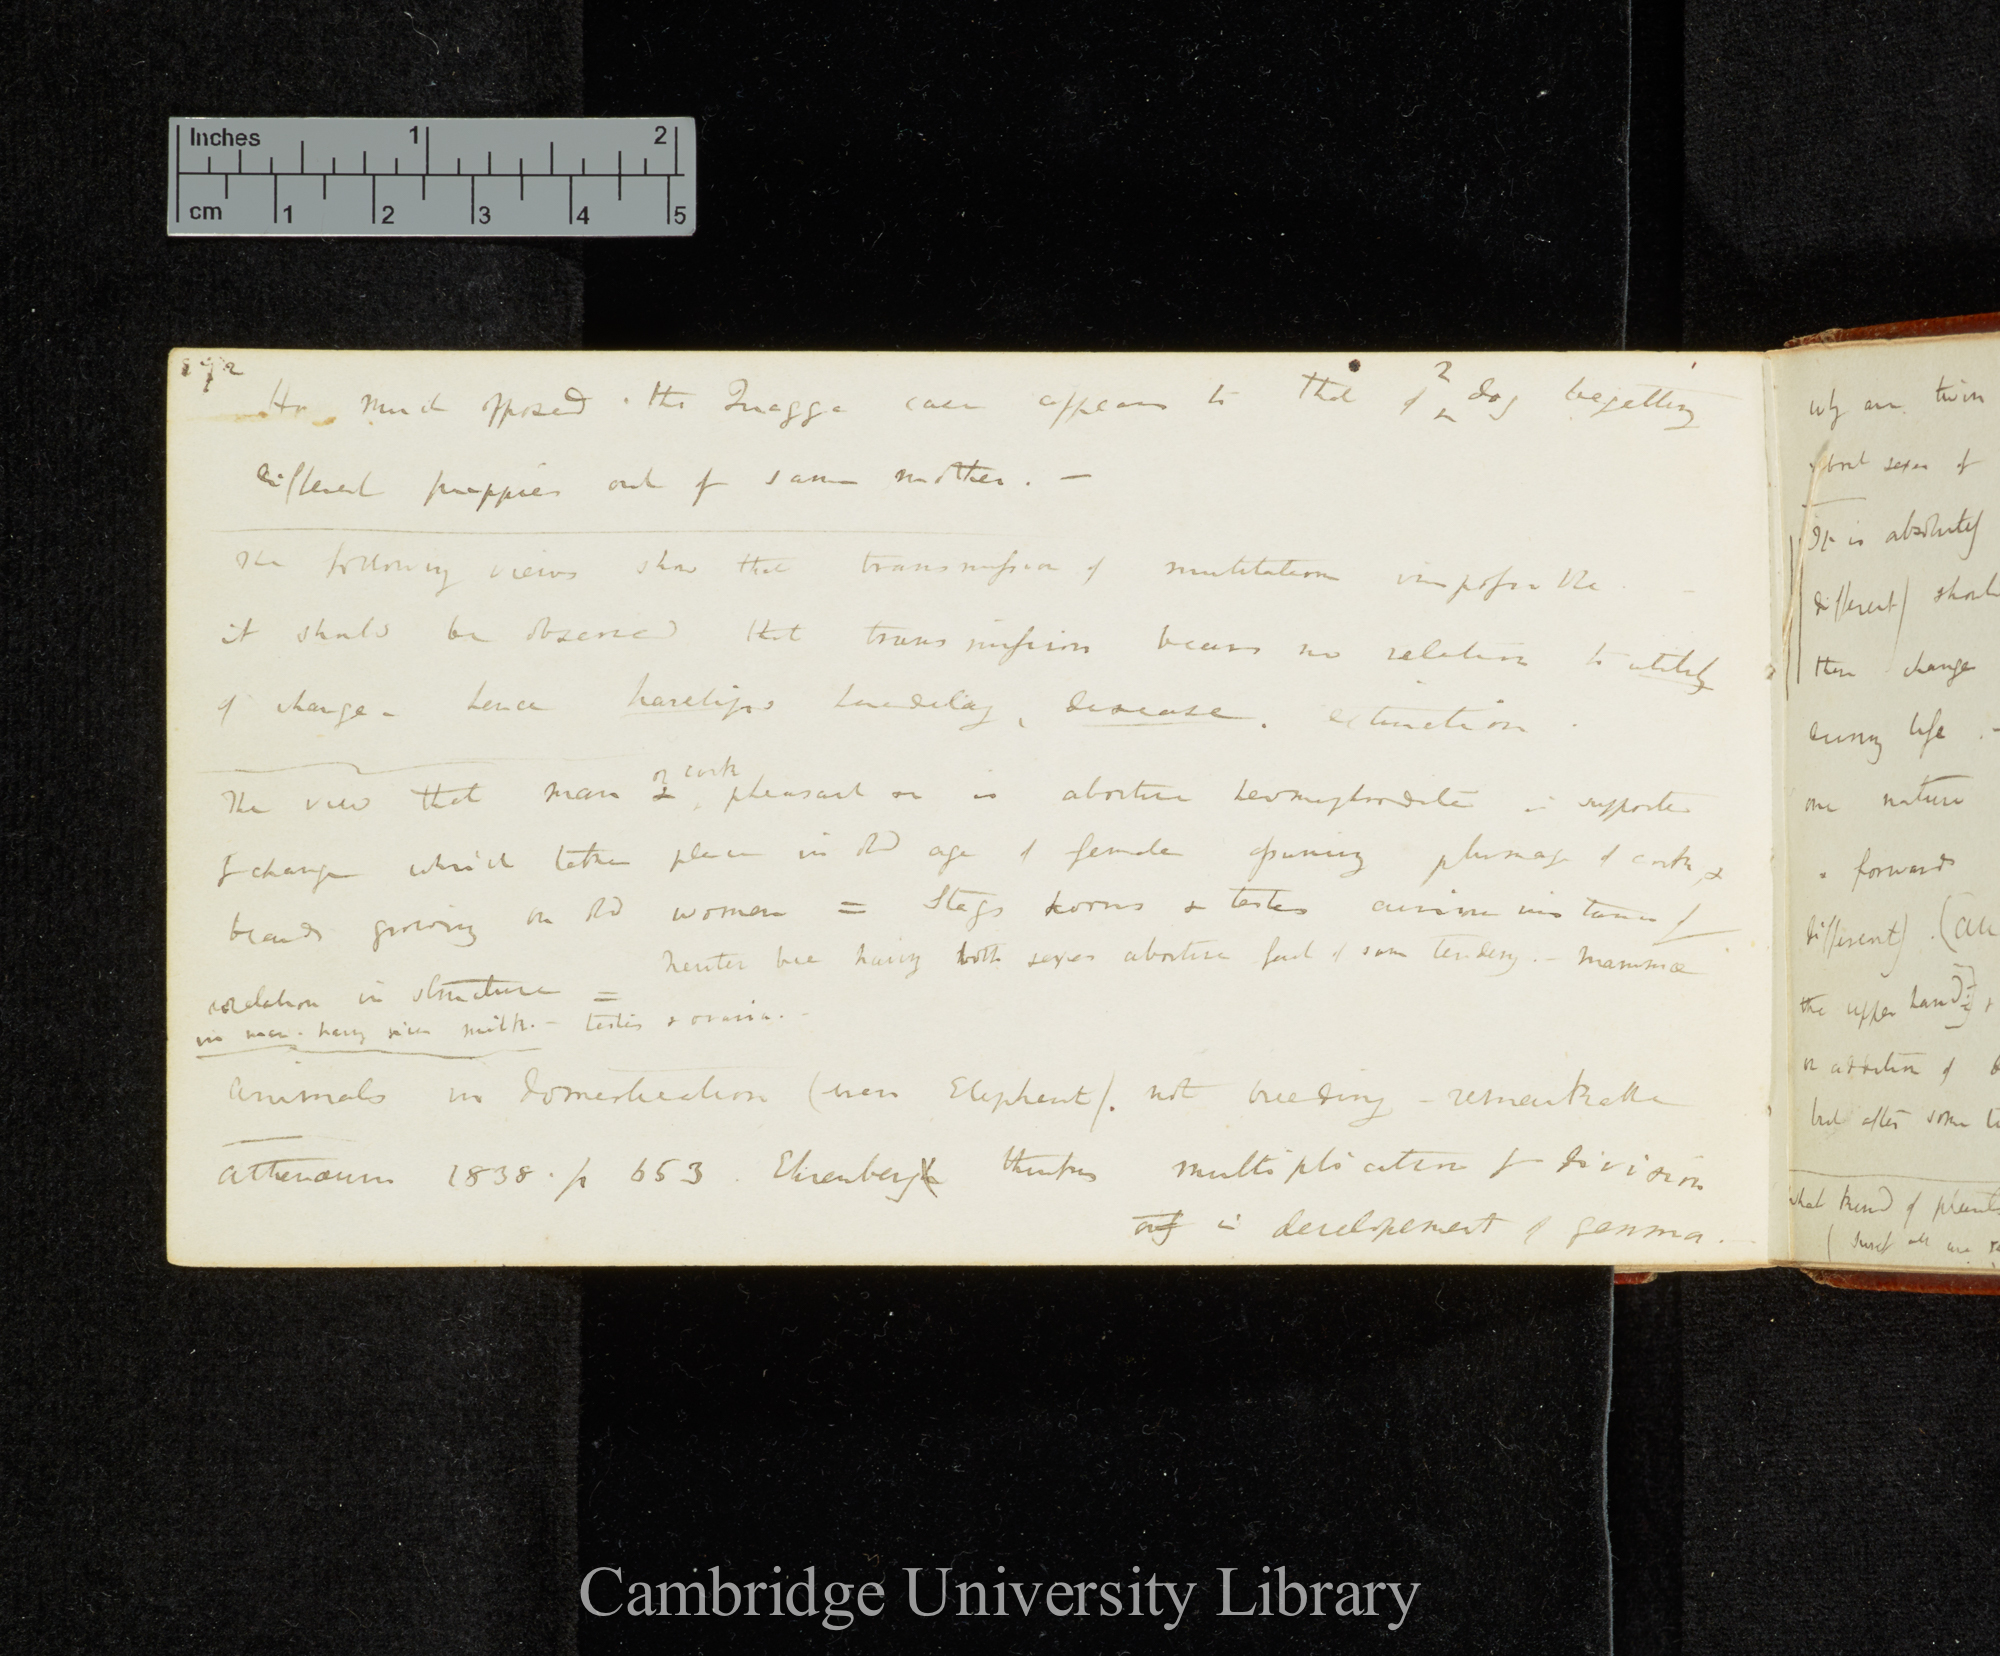 Inches 1 2
cm 1 2 3 4 5
How much opposed the Quagga case appears to that of 2 dog begetting
different puppies out of same mother. —
The following views show that transmission of mutilation impossible. —
it should be observed that transmission bears no relation to utility
of change — hence harelips hereditary, disease. extinction.
or cock
The view that man & pheasant is abortive hermaphrodite is supported
by change which takes place in old age of female assuming plumage of cock, &
beards growing on old women = Stags horns & testes curious instance of
correlation in structure =
neuter bee having both sexes abortive fact of same tendency. — Mammæ
in man. having given milk. — testes & ovaria. —
Animals in domestication (even Elephant). not breeding — remarkable
Athenæum 1838. p 653. Ehrenberg thinks multiplication by division
only is developement of gemma. —
why are twin
sexes of
It is absolutely
different)
then change
during life. —
one nature
forwards
different).
the upper hand
or addition of
but after some
what kind of plants
Cambridge University Library